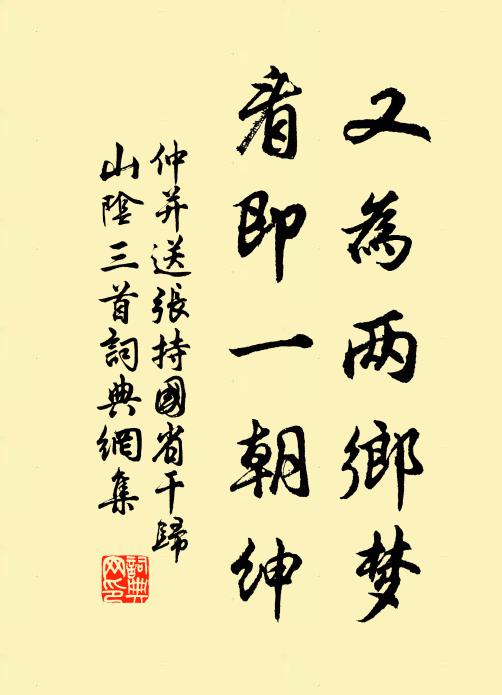 又為两鄉梦
看即一朝紳
仲并送張持國省干歸
山陰三首詞典網集
詞典
网印